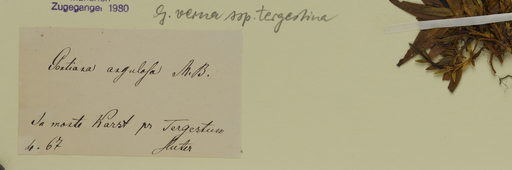 Zugegangen 1980
G. verna ssp. tergestina
Gentiana angulosa M. B.
In monte Karst pr Tergestum
4. 67 Huter